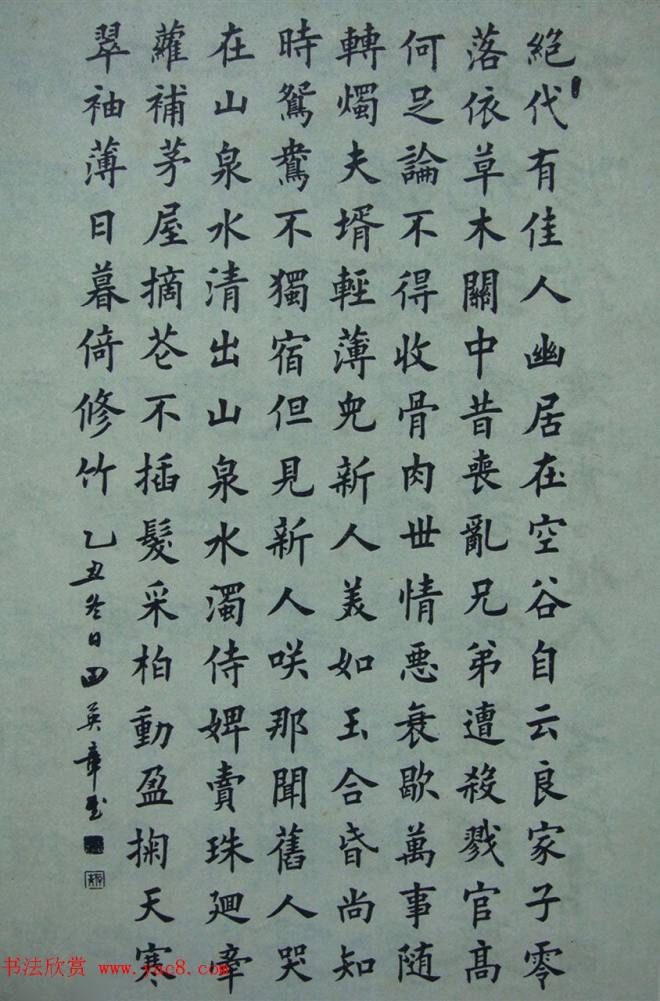 絕代有佳人幽居在空谷自云良家子零
落依草木關中昔喪亂兄弟遭殺戮官髙
何足論不得收骨肉世情悪衰歇萬事随
轉燭夫壻輕薄兒新人美如玉合昏尚知
時鴛鴦不獨宿但見新人咲那聞舊人哭
在山泉水清出山泉水濁侍婢賣珠迴牽
蘿補茅屋摘花不插髮采柏動盈掬天寒
翠袖薄日暮倚修竹
乙丑冬日田英章書
书法欣赏 www.yac8.com